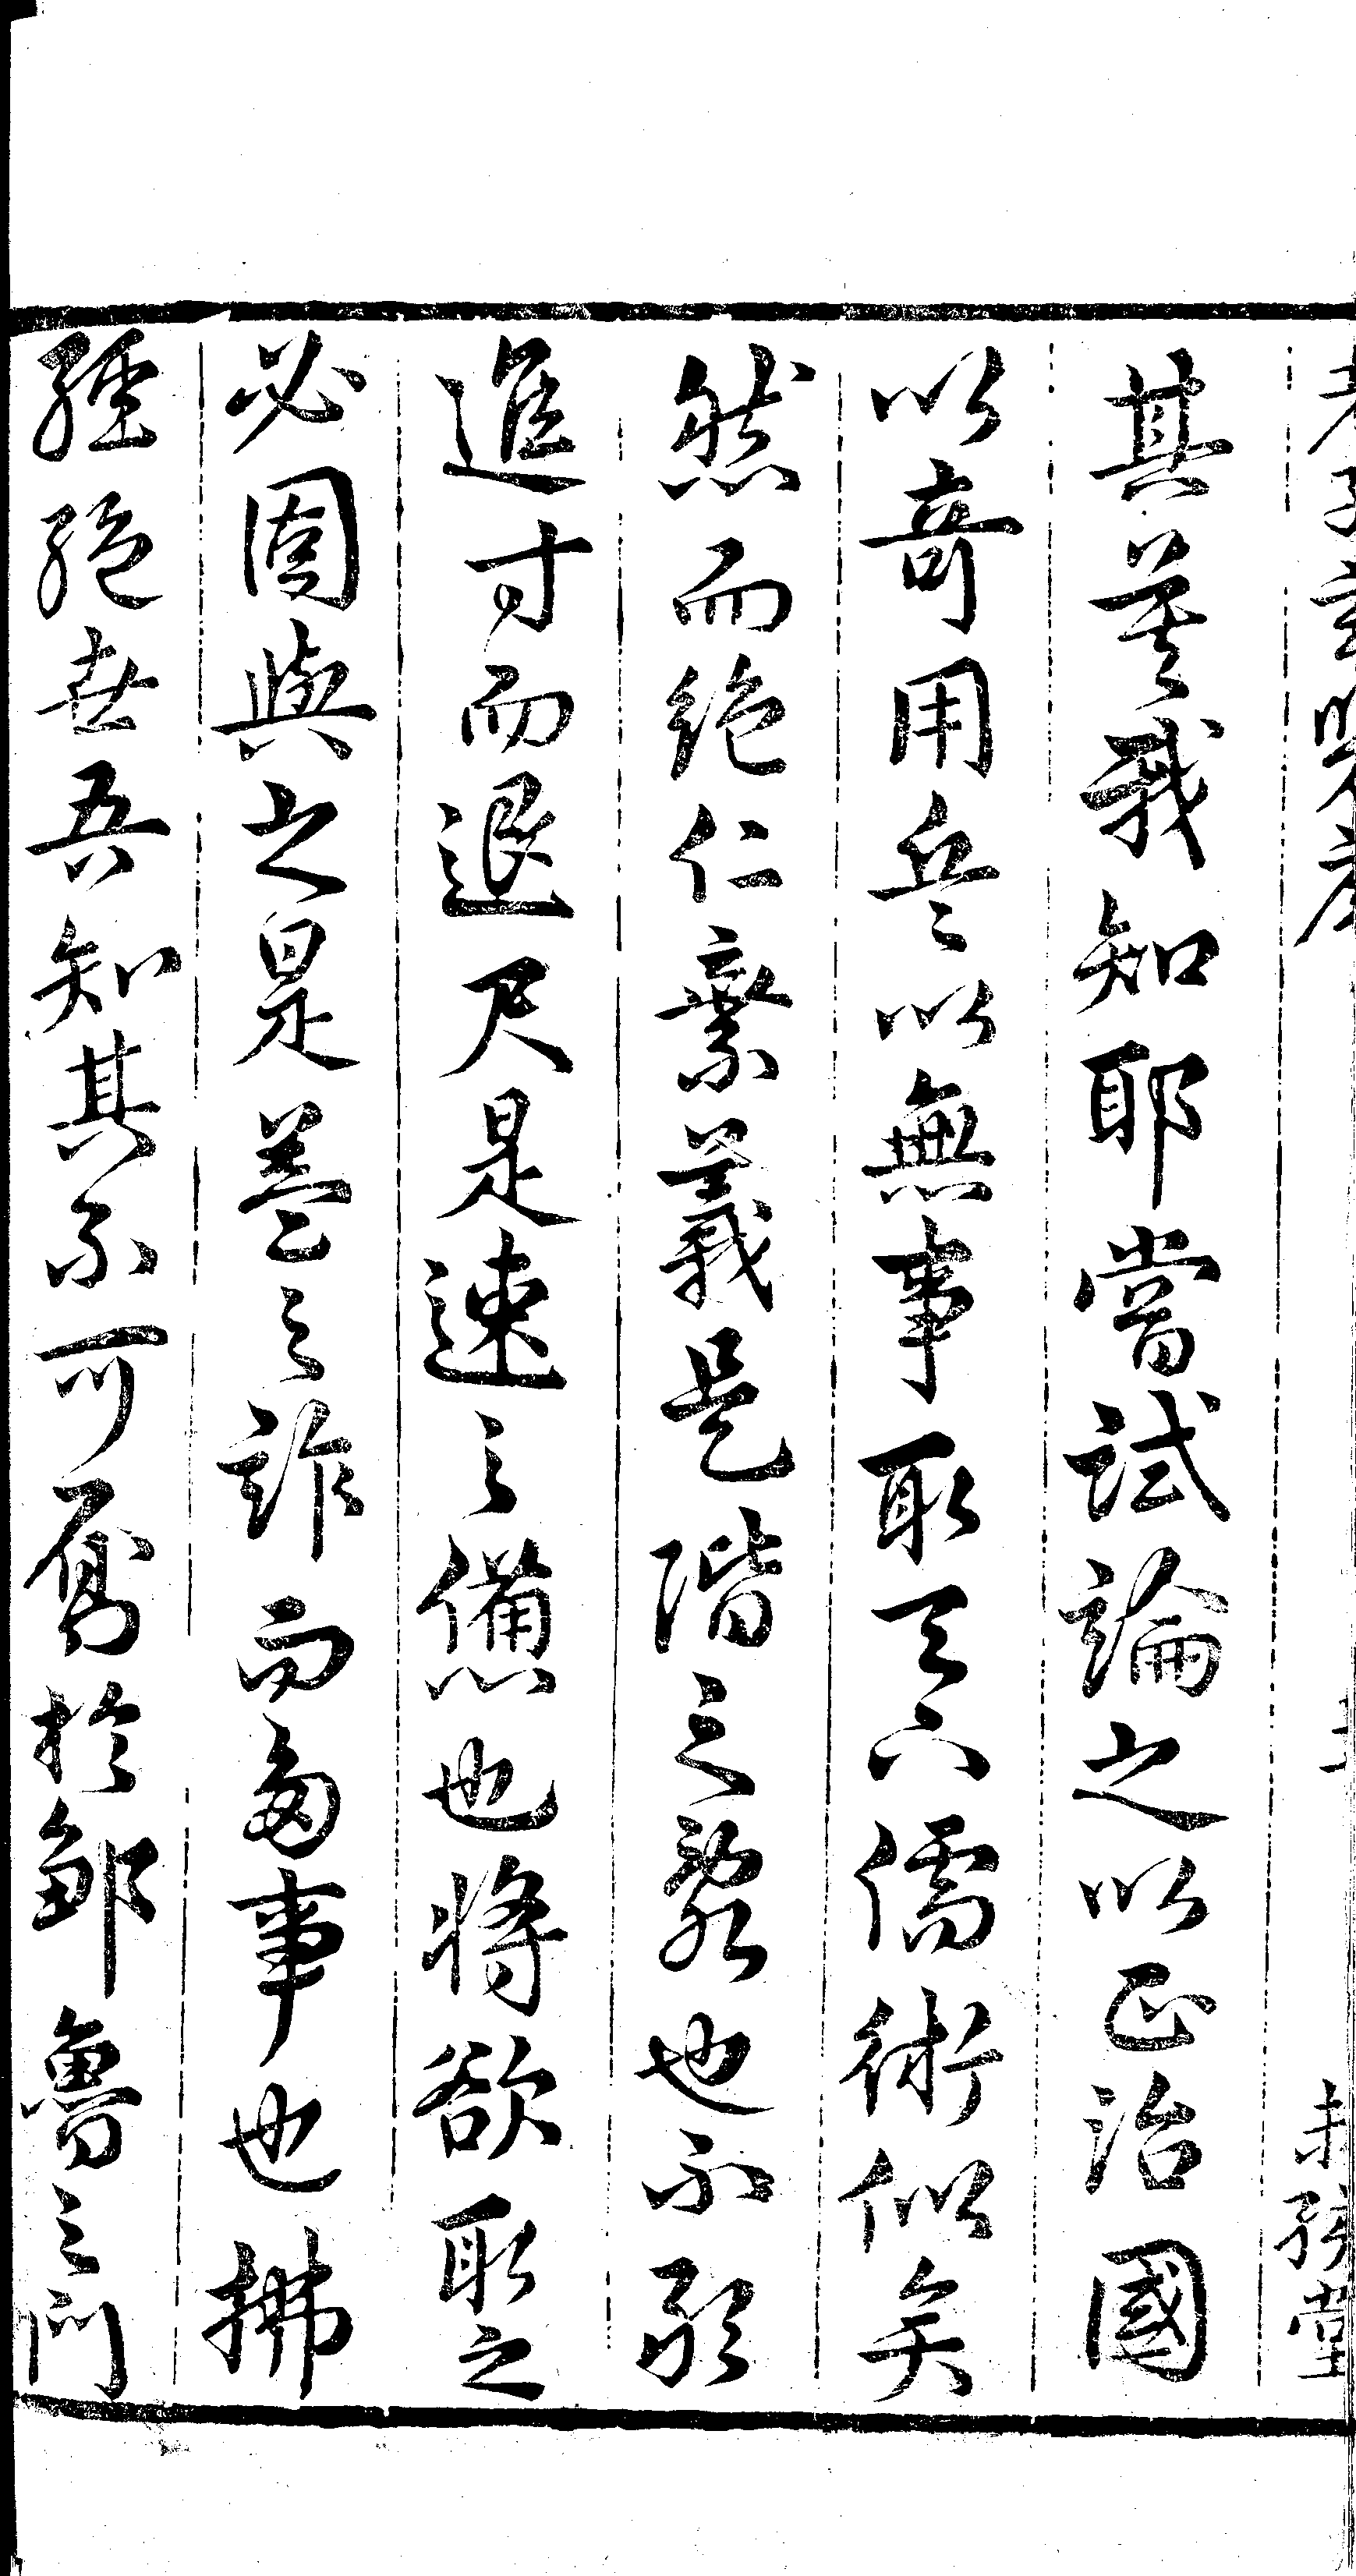 老子玄覽序 未孩堂
其莫我知耶嘗試論之以正治國
以奇用兵以無事取天下儒術似矣
然而絕仁棄義是階之也不敢
進寸而退尺是速之憊也將欲取之
必固與之是益之詐而多事也拂
經絕世吾知其不可於鄒魯之門